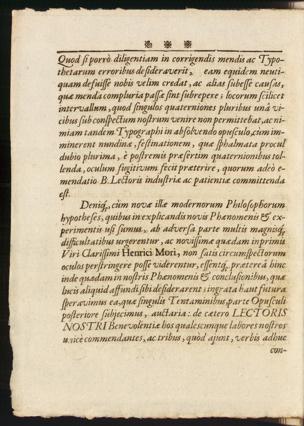 Quod si porrò diligentiam in corrigendis mendis ac Typo-
thetarum erroribus desideraverit, eam equidem neuti-
quam defuisse nobis velim credat, ac alias subesse causas,
quæ menda compluria passæ sint subrepere: locorum scilicet
intervallum, quod singulos quaterniones pluribus unâ vi-
cibus sub conspectum nostrum venire non permittebat, ac ni-
miam tandem Typographi in absolvendo opusculo, cùm im-
minerent nundinæ, festinationem, quæ sphalmata procul
dubio plurima, è postremis præsertim quaternionibus tol-
lenda, oculum fugitivum fecit præterire, quorum adeò e-
mendatio B. Lectoris industriæ ac patientiæ committenda
est.
Deniq;, cùm novæ illæ modernorum Philosophorum
hypotheses, quibus in explicandis novis Phænomenis & ex-
perimentis usi sumus, ab adversa parte multis magnisq;
difficultatibus urgerentur, ac novissimæ quædam inprimis
Viri Clarissimi Henrici Mori, non satis circumspectorum
oculos perstringere posse viderentur, essentq; prætereà hinc
inde quædam in nostris Phænomenis & conclusionibus, quæ
lucis aliquid affundi sibi desiderarent; ingrata haut futura
speravimus ea, quæ singulis Tentaminibus, parte Opusculi
posteriore subjecimus, auctaria: de cætero LECTORIS
NOSTRI Benevolentiæ hos qualescunque labores nostros
unicè commendantes, ac tribus, quòd ajunt, verbis adhuc
con-